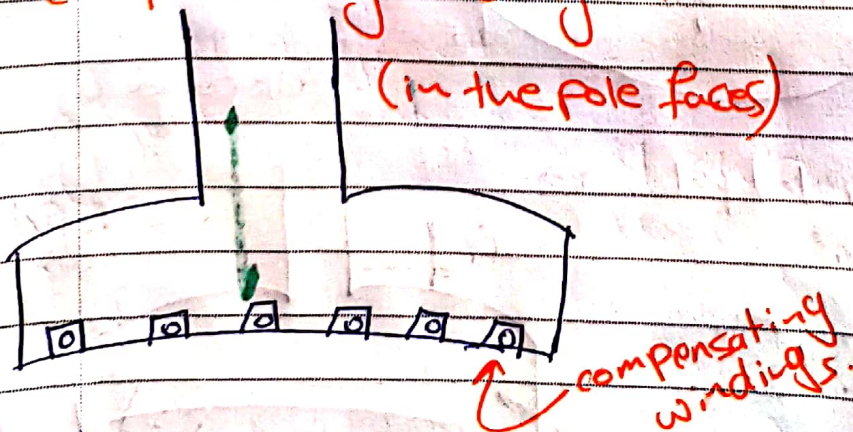 (in the pole faces)
compensating
windings.